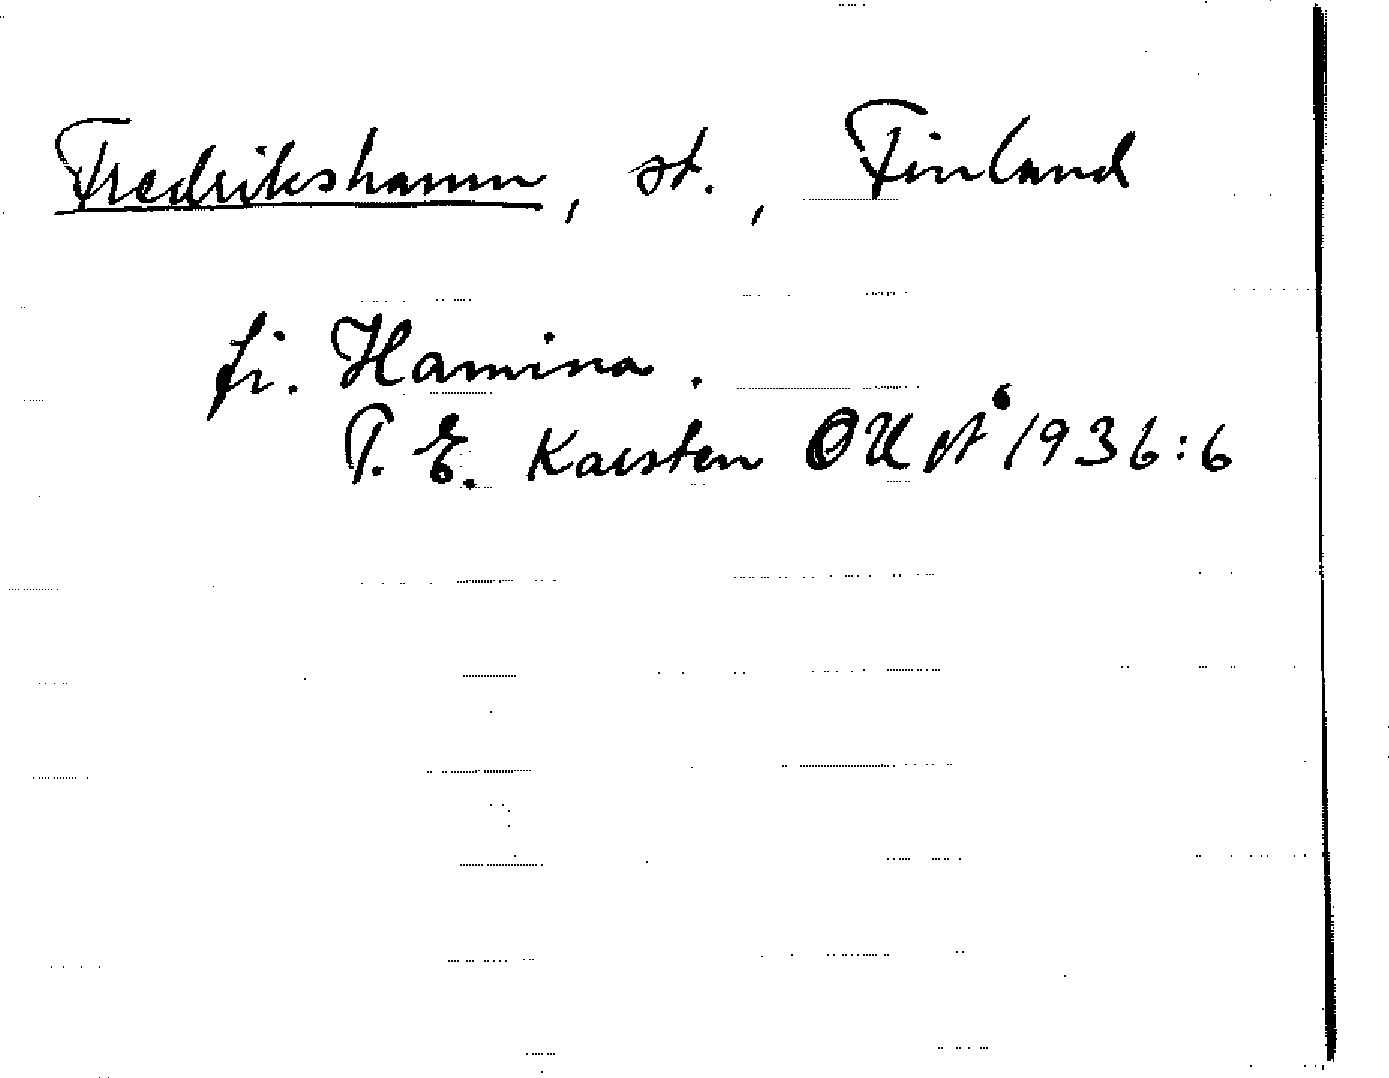 Fredrikshamn, st., Finland
fi. Hamina.
T. E. Karsten 1936:6